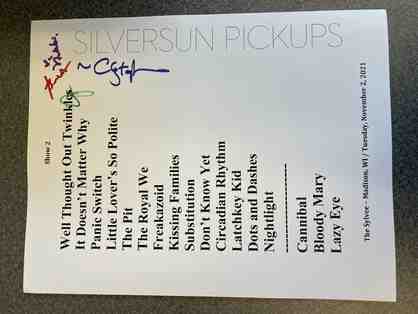 SILVERSUN PICKUPS
Show 2
Well Thought Out Twinkles
It Doesn't Matter Why
Panic Switch
Little Lover's So Polite
The Pit
The Royal We
Freakazoid
Kissing Families
Substitution
Don't Know Yet
Circadian Rhythm
Latchkey Kid
Dots and Dashes
Nightlight
--------------
Cannibal
Bloody Mary
Lazy Eye
The Sylvee - Madison, WI / Tuesday, November 2, 2021